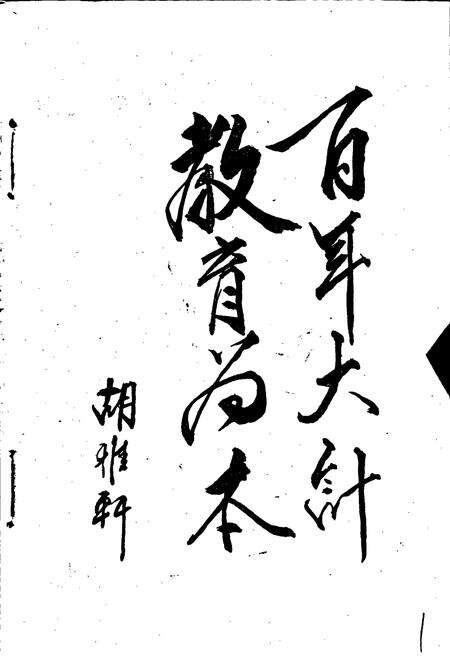 百年大計
教育为本
胡雅軒